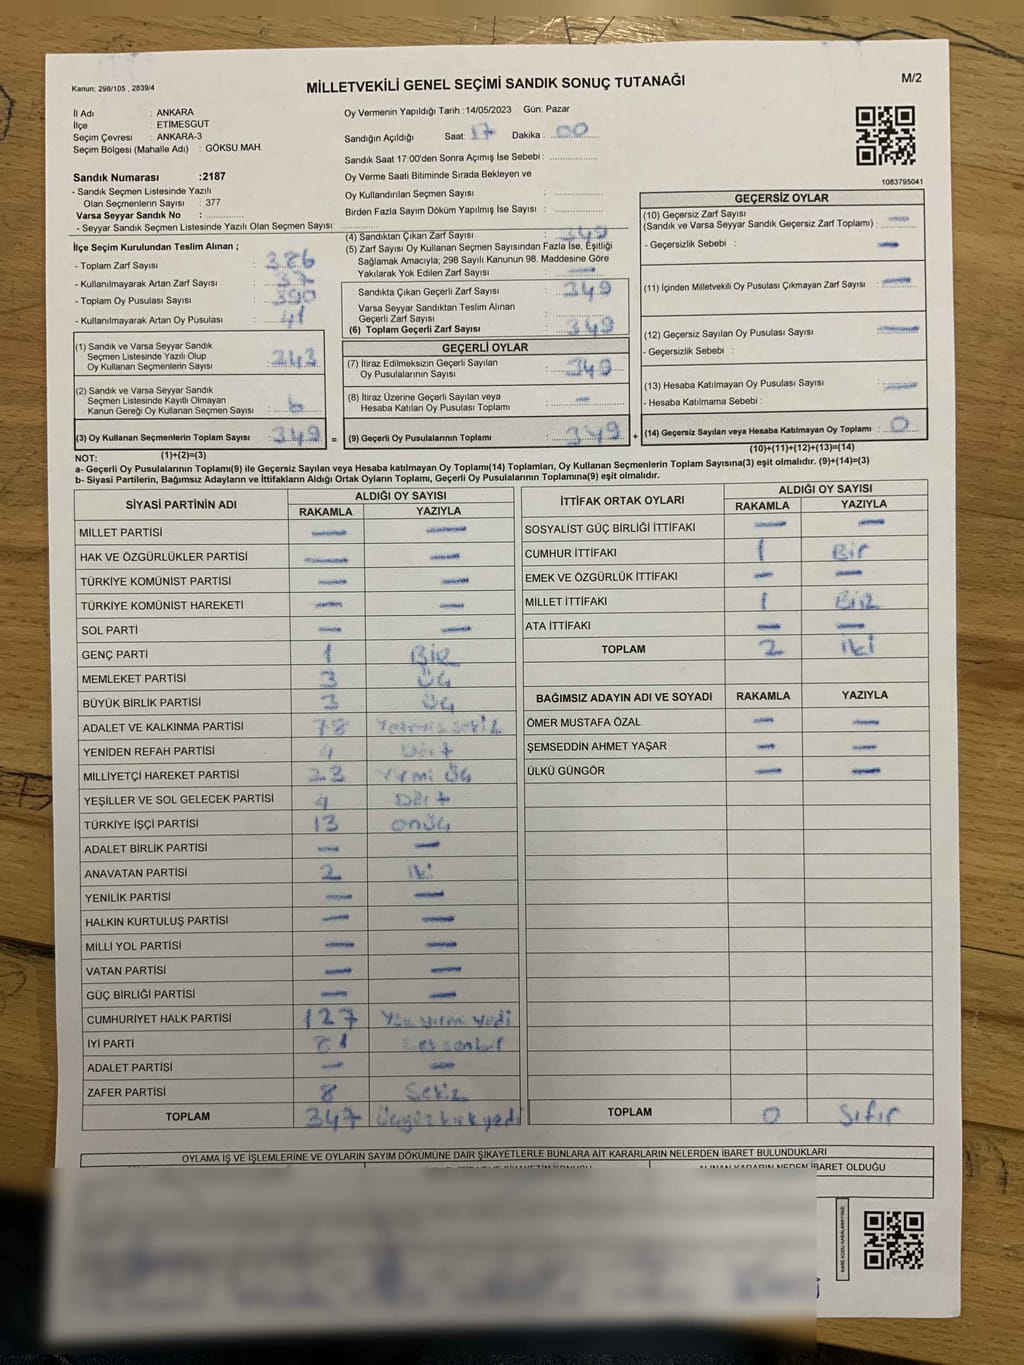 Kanun; 298/105 , 2839/4
MİLLETVEKİLİ GENEL SEÇİMİ SANDIK SONUÇ TUTANAĞI
M/2
İl Adı : ANKARA
İlçe : ETİMESGUT
Seçim Çevresi : ANKARA-3
Seçim Bölgesi (Mahalle Adı) : GÖKSU MAH.
Oy Vermenin Yapıldığı Tarih : 14/05/2023 Gün: Pazar
Sandığın Açıldığı Saat: 17 Dakika : 00
Sandık Saat 17:00'den Sonra Açımış İse Sebebi :
Oy Verme Saati Bitiminde Sırada Bekleyen ve
Oy Kullandırılan Seçmen Sayısı :
Birden Fazla Sayım Döküm Yapılmış İse Sayısı :
1083795041
Sandık Numarası :2187
- Sandık Seçmen Listesinde Yazılı
Olan Seçmenlerin Sayısı : 377
Varsa Seyyar Sandık No :
- Seyyar Sandık Seçmen Listesinde Yazılı Olan Seçmen Sayısı:
İlçe Seçim Kurulundan Teslim Alınan ;
- Toplam Zarf Sayısı : 386
- Kullanılmayarak Artan Zarf Sayısı : 37
- Toplam Oy Pusulası Sayısı : 390
- Kullanılmayarak Artan Oy Pusulası : 41
(1) Sandık ve Varsa Seyyar Sandık
Seçmen Listesinde Yazılı Olup
Oy Kullanan Seçmenlerin Sayısı : 343
(2) Sandık ve Varsa Seyyar Sandık
Seçmen Listesinde Kayıtlı Olmayan
Kanun Gereği Oy Kullanan Seçmen Sayısı : 6
(3) Oy Kullanan Seçmenlerin Toplam Sayısı : 349 =
(1)+(2)=(3)
(4) Sandıktan Çıkan Zarf Sayısı : 349
(5) Zarf Sayısı Oy Kullanan Seçmen Sayısından Fazla İse, Eşitliği
Sağlamak Amacıyla; 298 Sayılı Kanunun 98. Maddesine Göre
Yakılarak Yok Edilen Zarf Sayısı :
Sandıkta Çıkan Geçerli Zarf Sayısı : 349
Varsa Seyyar Sandıktan Teslim Alınan
Geçerli Zarf Sayısı :
(6) Toplam Geçerli Zarf Sayısı : 349
GEÇERLİ OYLAR
(7) İtiraz Edilmeksizin Geçerli Sayılan
Oy Pusulalarının Sayısı : 349
(8) İtiraz Üzerine Geçerli Sayılan veya
Hesaba Katılan Oy Pusulası Toplamı :
(9) Geçerli Oy Pusulalarının Toplamı : 349 +
GEÇERSİZ OYLAR
(10) Geçersiz Zarf Sayısı
(Sandık ve Varsa Seyyar Sandık Geçersiz Zarf Toplamı) :
- Geçersizlik Sebebi :
(11) İçinden Milletvekili Oy Pusulası Çıkmayan Zarf Sayısı :
(12) Geçersiz Sayılan Oy Pusulası Sayısı :
- Geçersizlik Sebebi :
(13) Hesaba Katılmayan Oy Pusulası Sayısı :
- Hesaba Katılmama Sebebi :
(14) Geçersiz Sayılan veya Hesaba Katılmayan Oy Toplamı : 0
(10)+(11)+(12)+(13)=(14)
NOT:
a- Geçerli Oy Pusulalarının Toplamı(9) ile Geçersiz Sayılan veya Hesaba katılmayan Oy Toplamı(14) Toplamları, Oy Kullanan Seçmenlerin Toplam Sayısına(3) eşit olmalıdır. (9)+(14)=(3)
b- Siyasi Partilerin, Bağımsız Adayların ve İttifakların Aldığı Ortak Oyların Toplamı, Geçerli Oy Pusulalarının Toplamına(9) eşit olmalıdır.
SİYASİ PARTİNİN ADI ALDIĞI OY SAYISI
RAKAMLA YAZIYLA
MİLLET PARTİSİ
HAK VE ÖZGÜRLÜKLER PARTİSİ
TÜRKİYE KOMÜNİST PARTİSİ
TÜRKİYE KOMÜNİST HAREKETİ
SOL PARTİ
GENÇ PARTİ 1 BİR
MEMLEKET PARTİSİ 3 Üç
BÜYÜK BİRLİK PARTİSİ 3 Üç
ADALET VE KALKINMA PARTİSİ 78 Yetmiş sekiz
YENİDEN REFAH PARTİSİ 4 Dört
MİLLİYETÇİ HAREKET PARTİSİ 23 Yirmi Üç
YEŞİLLER VE SOL GELECEK PARTİSİ 4 Dört
TÜRKİYE İŞÇİ PARTİSİ 13 onüç
ADALET BİRLİK PARTİSİ
ANAVATAN PARTİSİ 2 İki
YENİLİK PARTİSİ
HALKIN KURTULUŞ PARTİSİ
MİLLİ YOL PARTİSİ
VATAN PARTİSİ
GÜÇ BİRLİĞİ PARTİSİ
CUMHURİYET HALK PARTİSİ 127 Yüz yirmi yedi
İYİ PARTİ 81 Seksenbir
ADALET PARTİSİ
ZAFER PARTİSİ 8 Sekiz
TOPLAM 347 Üçyüzkırkyedi
İTTİFAK ORTAK OYLARI ALDIĞI OY SAYISI
RAKAMLA YAZIYLA
SOSYALİST GÜÇ BİRLİĞİ İTTİFAKI
CUMHUR İTTİFAKI 1 Bir
EMEK VE ÖZGÜRLÜK İTTİFAKI
MİLLET İTTİFAKI 1 Bir
ATA İTTİFAKI
TOPLAM 2 İki
BAĞIMSIZ ADAYIN ADI VE SOYADI RAKAMLA YAZIYLA
ÖMER MUSTAFA ÖZAL
ŞEMSEDDİN AHMET YAŞAR
ÜLKÜ GÜNGÖR
TOPLAM 0 Sıfır
OYLAMA İŞ VE İŞLEMLERİNE VE OYLARIN SAYIM DÖKÜMÜNE DAİR ŞİKAYETLERLE BUNLARA AİT KARARLARIN NELERDEN İBARET BULUNDUKLARI
ALINAN KARARIN NEDEN İBARET OLDUĞU